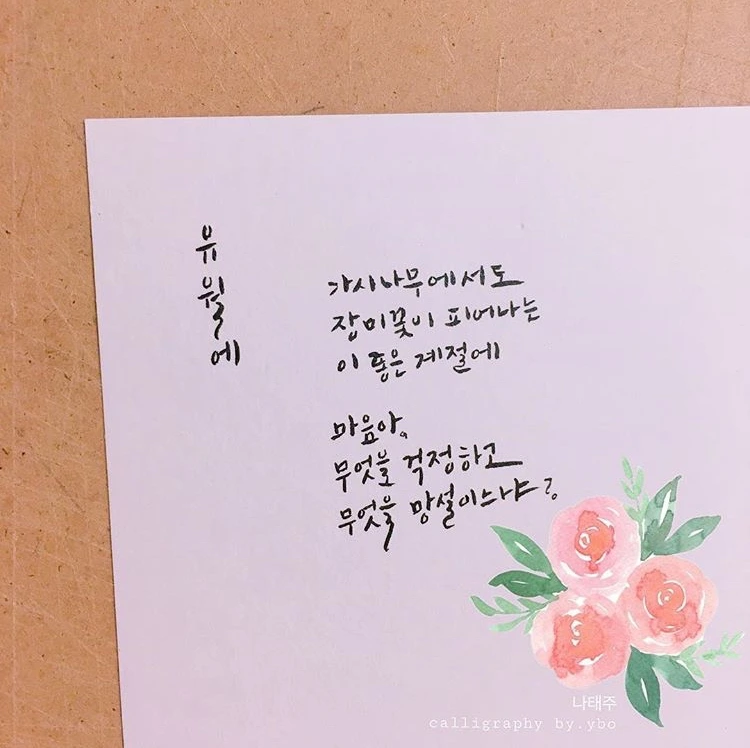 유월에
가시나무에서도
장미꽃이 피어나는
이 좋은 계절에
마음아,
무엇을 걱정하고
무엇을 망설이느냐?
나태주
calligraphy by.ybo